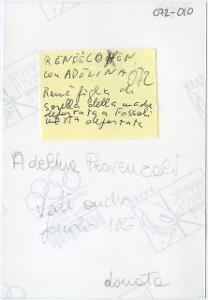 072-010
RENÉE COHEN
con ADELINA 072
Renè figlia di
sorella della madre
deportata a Fossoli
morta deportata
Adelina Provenzali
Vedi anche
fondo 186
donata